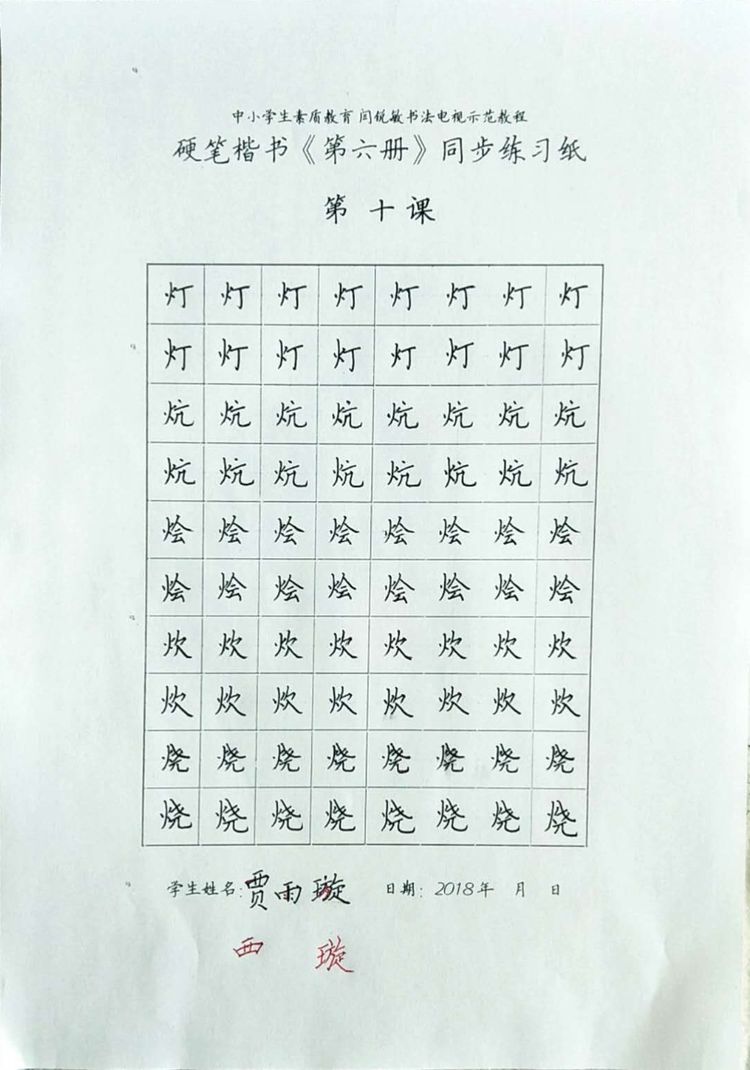 中小学生素质教育闫锐敏书法电视示范教程
硬笔楷书《第六册》同步练习纸
第十课
灯灯灯灯灯灯灯灯
灯灯灯灯灯灯灯灯
炕炕炕炕炕炕炕炕
炕炕炕炕炕炕炕炕
烩烩烩烩烩烩烩烩
烩烩烩烩烩烩烩烩
炊炊炊炊炊炊炊炊
炊炊炊炊炊炊炊炊
烧烧烧烧烧烧烧烧
烧烧烧烧烧烧烧烧
学生姓名:贾雨璇 日期:2018年 月 日
西 璇